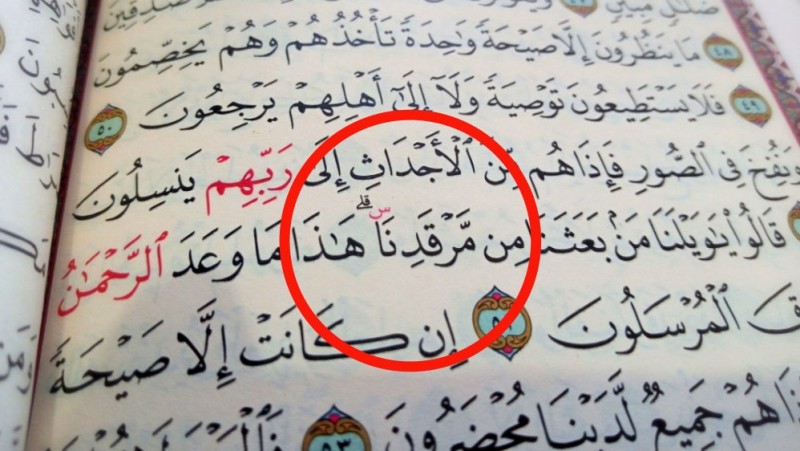 ضَلَٰلٍ مُّبِينٍ ٤٧ وَيَقُولُونَ
مَا يَنظُرُونَ إِلَّا صَيْحَةً وَٰحِدَةً تَأْخُذُهُمْ وَهُمْ يَخِصِّمُونَ ٤٩
فَلَا يَسْتَطِيعُونَ تَوْصِيَةً وَلَآ إِلَىٰٓ أَهْلِهِمْ يَرْجِعُونَ ٥٠
وَنُفِخَ فِى ٱلصُّورِ فَإِذَا هُم مِّنَ ٱلْأَجْدَاثِ إِلَىٰ رَبِّهِمْ يَنسِلُونَ
قَالُوا۟ يَٰوَيْلَنَا مَنۢ بَعَثَنَا مِن مَّرْقَدِنَا ۜ ۗ هَٰذَا مَا وَعَدَ ٱلرَّحْمَٰنُ
ٱلْمُرْسَلُونَ ٥٢ إِن كَانَتْ إِلَّا صَيْحَةً
هُمْ جَمِيعٌ لَّدَيْنَا مُحْضَرُونَ ٥٣